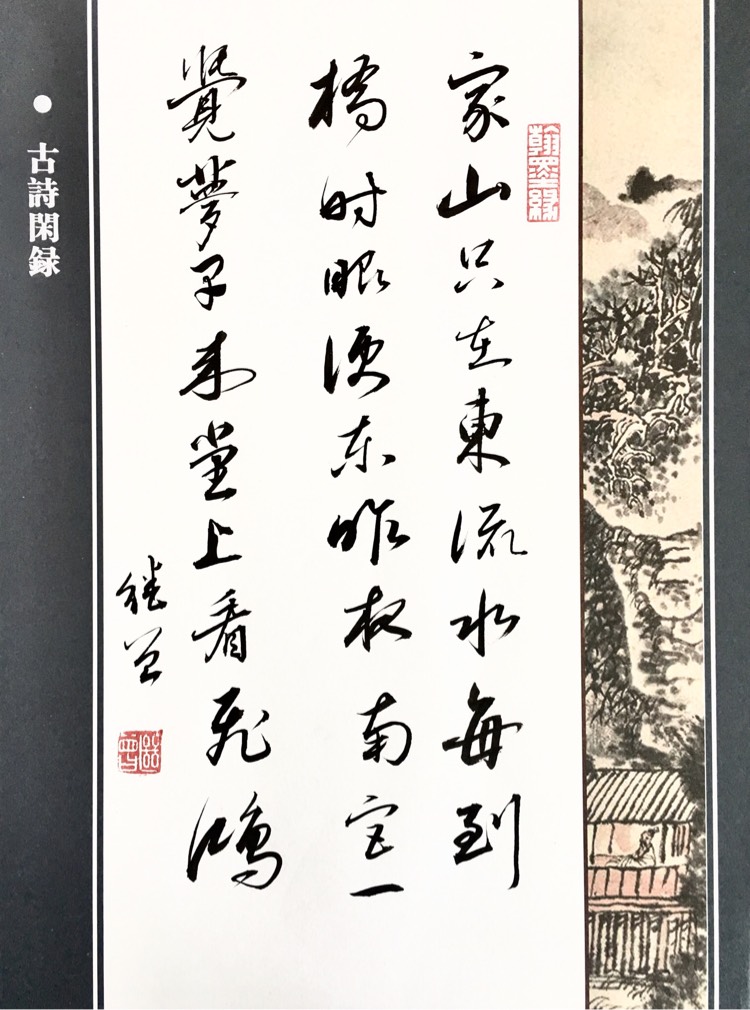 翰墨缘
家山只在東流水每到
橋时眼便东昨夜南窗一
覺夢子来堂上看飛鴻
古詩閑録